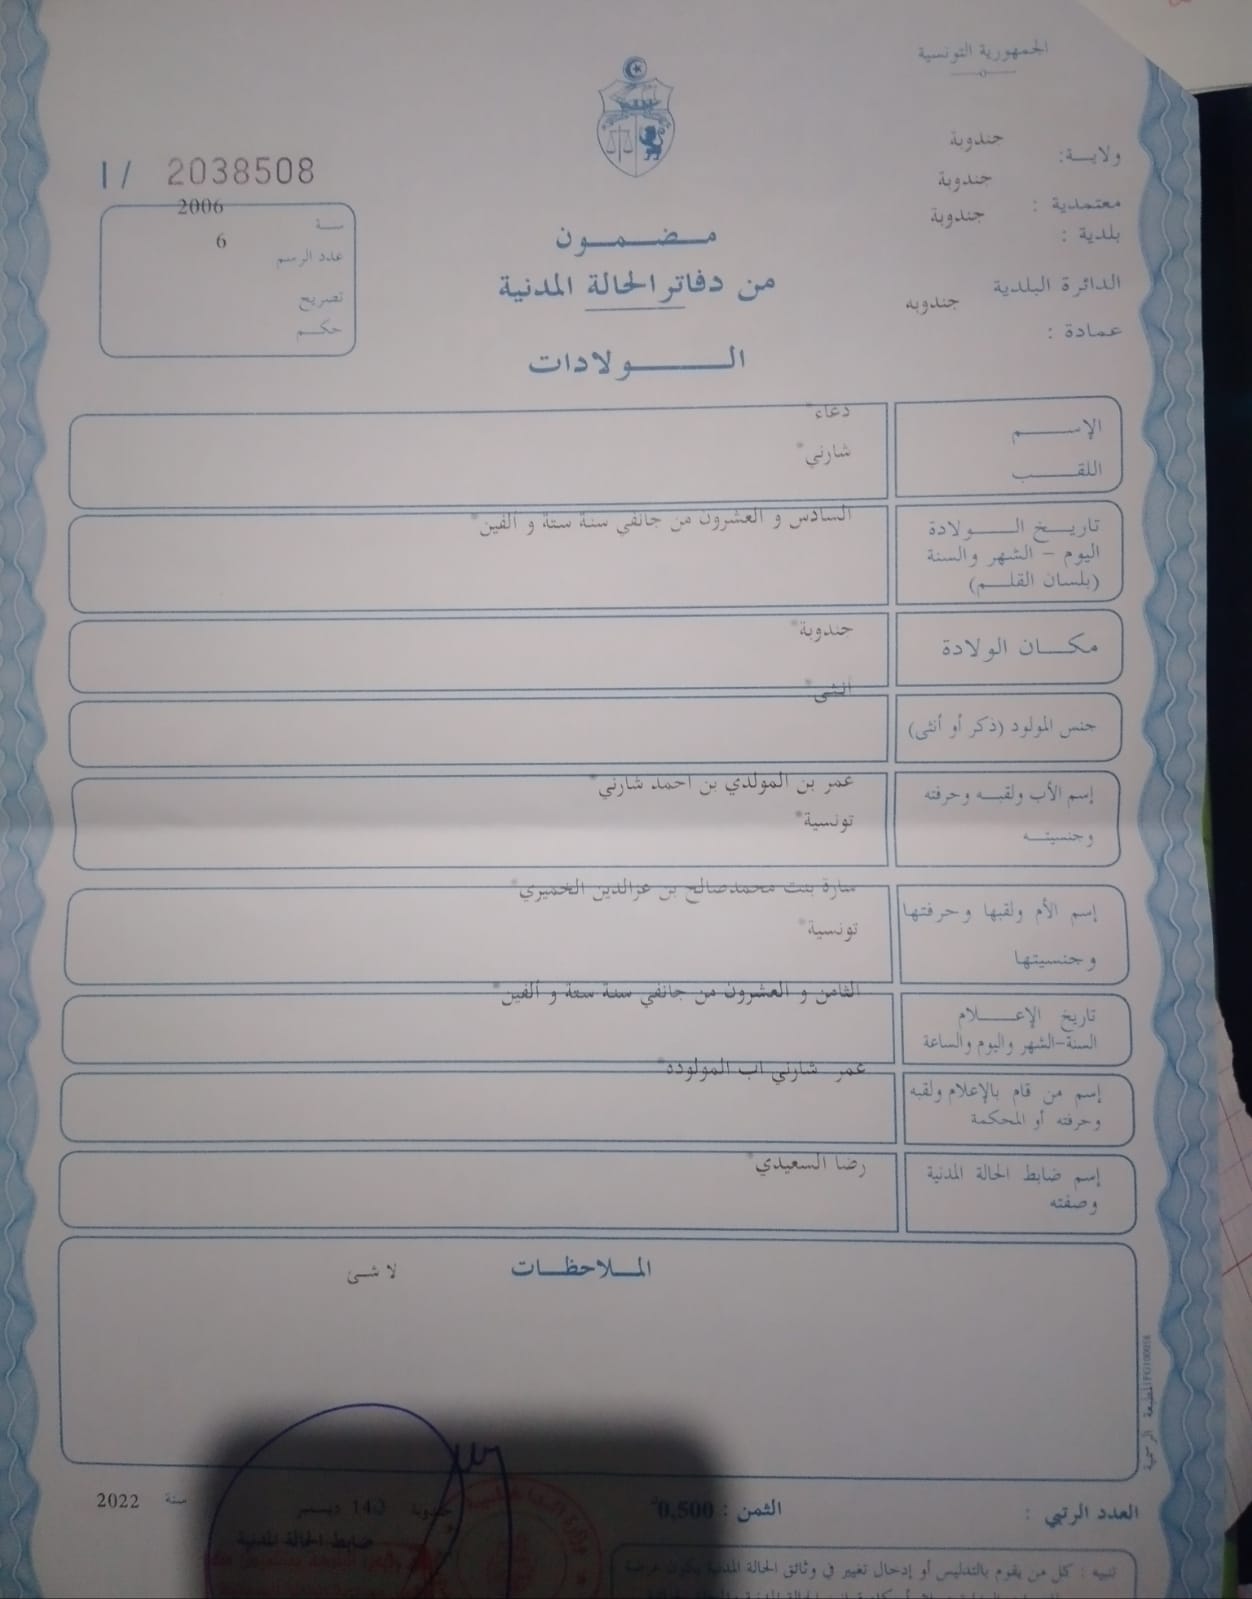 الجمهورية التونسية
ولاية: جندوبة
معتمدية : جندوبة
بلدية : جندوبة
الدائرة البلدية جندوبه
عمادة :
I/ 2038508
سنة 2006
عدد الرسم 6
تصريح
حكم
مضمون
من دفاتر الحالة المدنية
الولادات
الإسم دعاء*
اللقب شارني*
تاريخ الولادة السادس و العشرون من جانفي سنة ستة و ألفين*
اليوم - الشهر والسنة
(بلسان القلم)
مكان الولادة جندوبة*
جنس المولود (ذكر أو أنثى) انثى*
إسم الأب ولقبه وحرفته عمر بن المولدي بن احمد شارني*
وجنسيته تونسية*
إسم الأم ولقبها وحرفتها سارة بنت محمدصالح بن عزالدين الخميري*
وجنسيتها تونسية*
تاريخ الإعلام الثامن و العشرون من جانفي سنة ستة و ألفين*
السنة-الشهر واليوم والساعة
إسم من قام بالإعلام ولقبه عمر شارني اب المولوده*
وحرفته أو المحكمة
إسم ضابط الحالة المدنية رضا السعيدي*
وصفته
الملاحظات لا شئ
المطبعة الرسمية
العدد الرتبي :
الثمن : 0.500
جندوبة 14 ديسمبر سنة 2022
ضابط الحالة المدنية
تنبيه : كل من يقوم بالتدليس أو إدخال تغيير في وثائق الحالة المدنية يكون عرضة